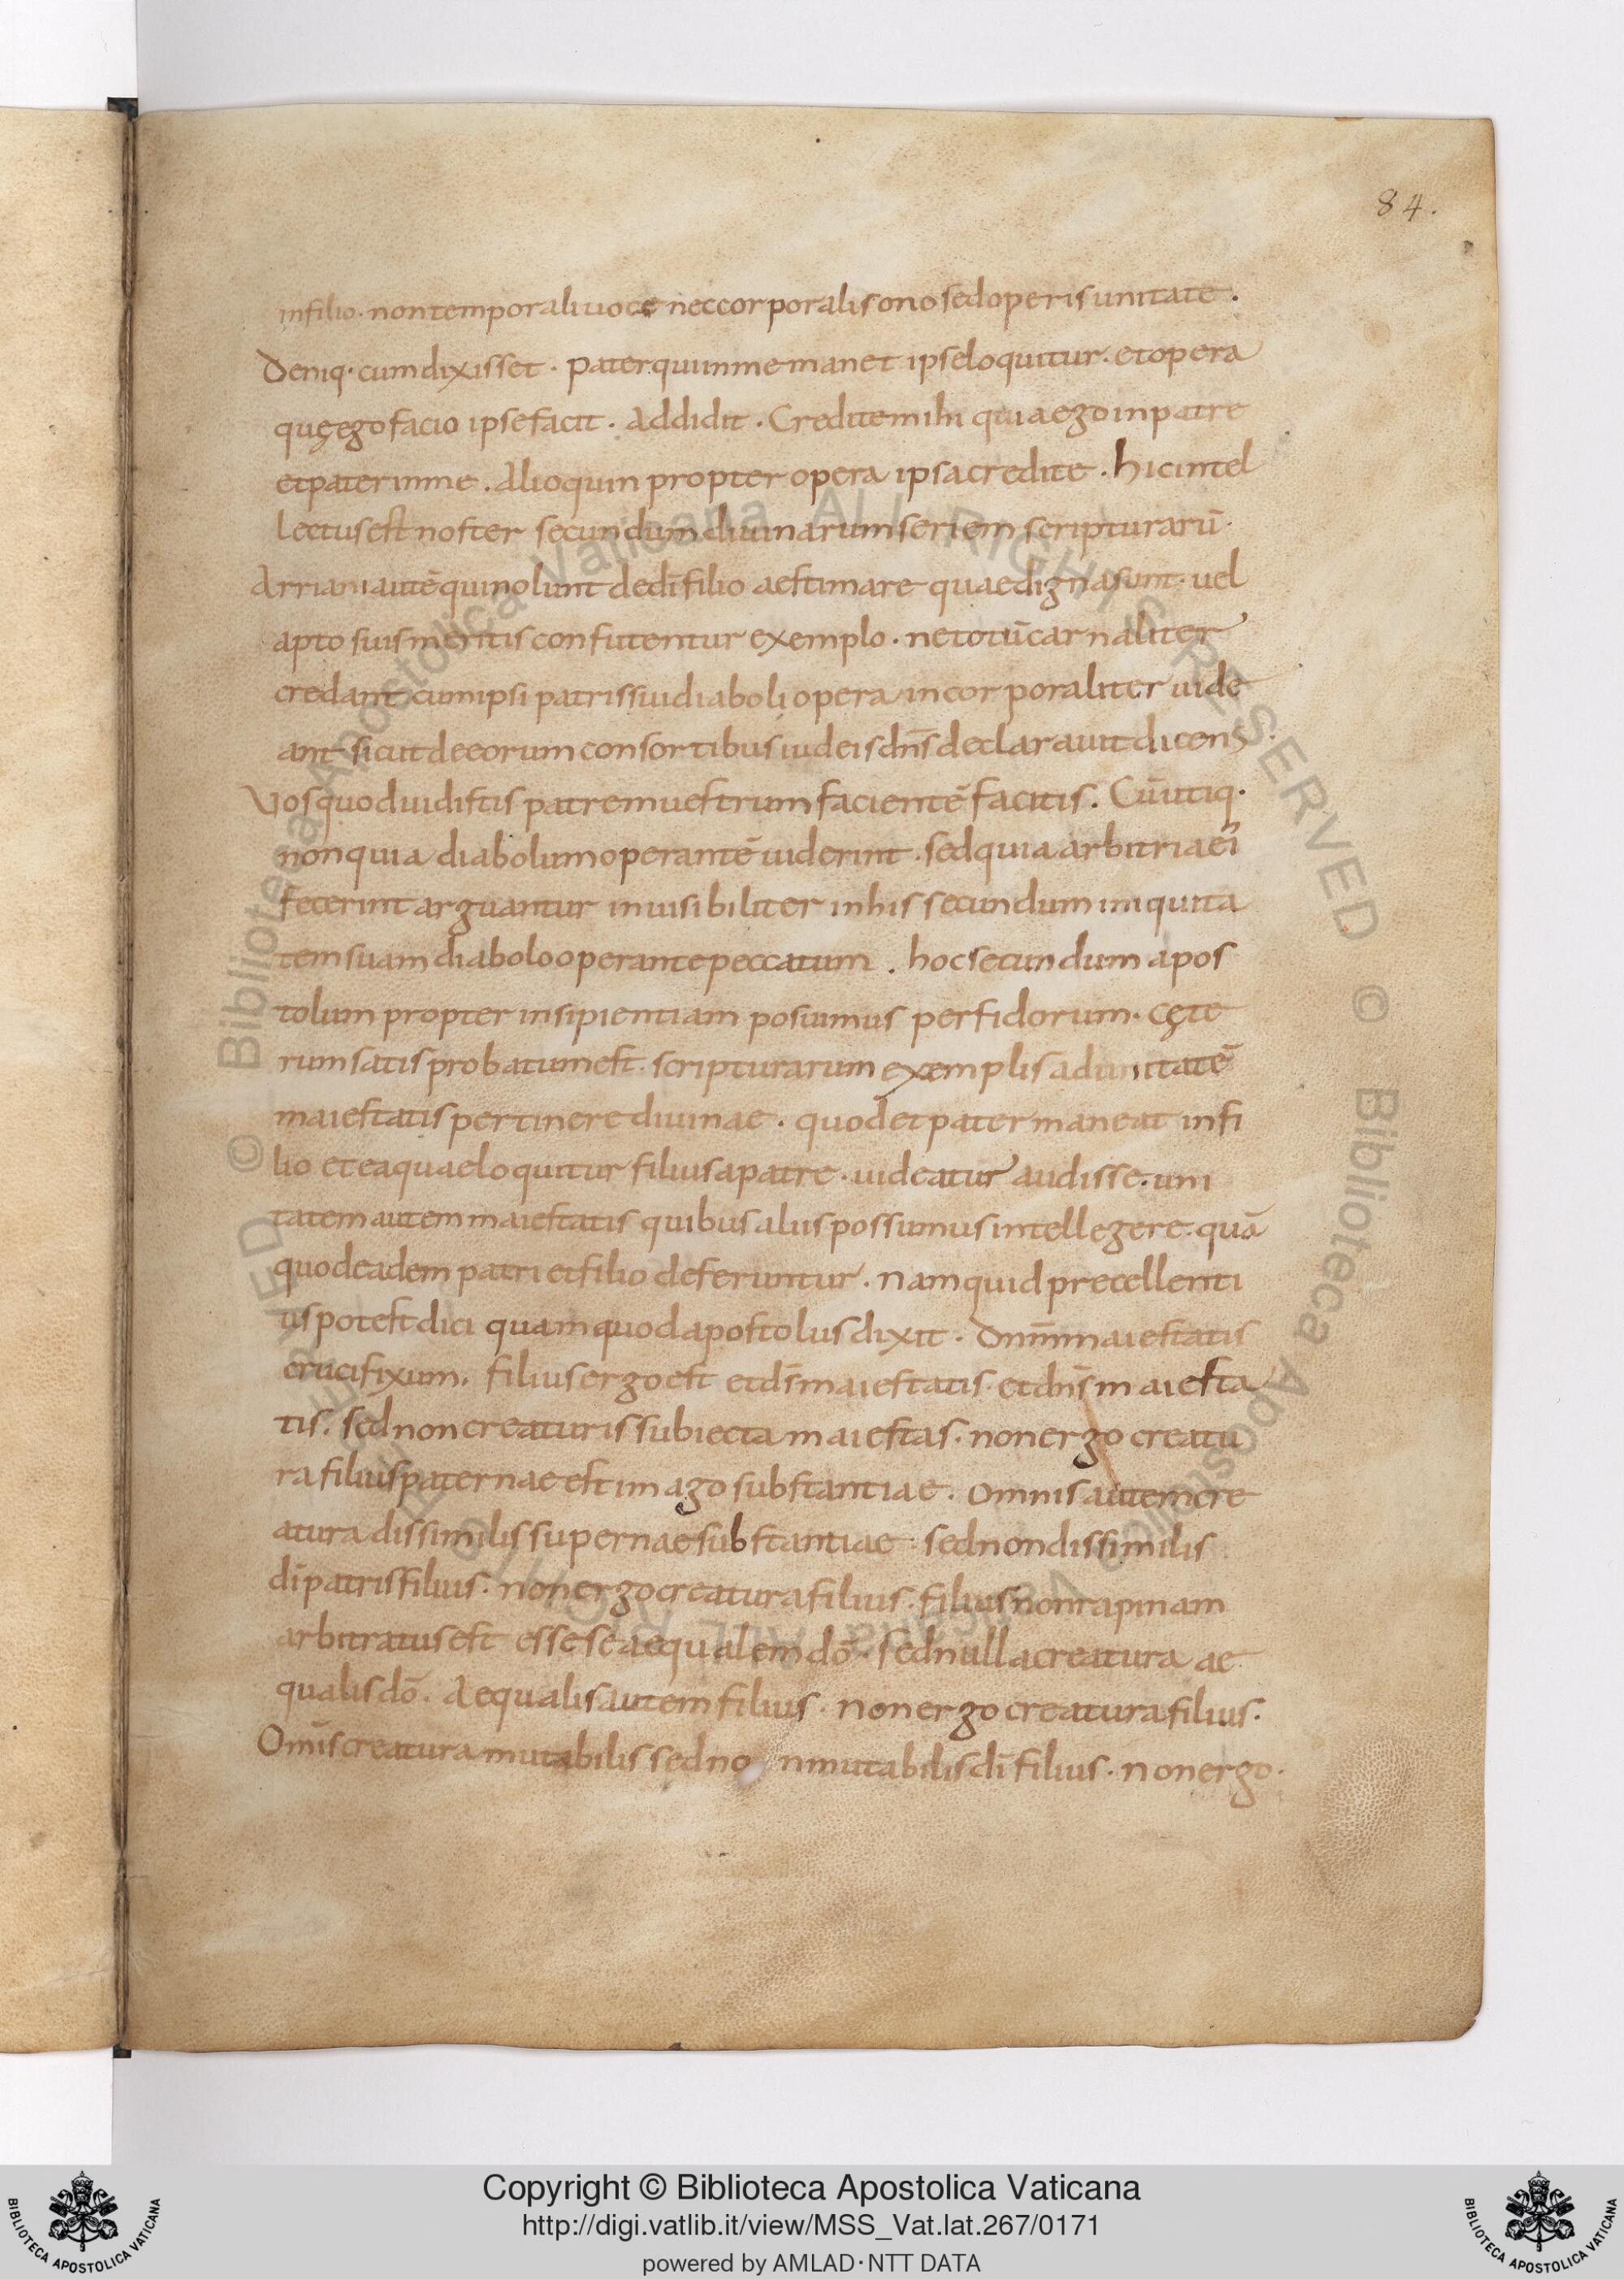 84.
infilio · non temporali uoce nec corporali sono sed operis unitate .
Deniq· cum dixisset · pater qui in me manet ipse loquitur · et opera
quę ego facio ipse facit · Addidit · Credite mihi quia ego in patre
et pater in me . Alioquin propter opera ipsa credite . hic intel
lectus est noster secundum diuinarum seriem scripturarū ·
Arriani autē qui nolunt de dī filio aestimare quae digna sunt · uel
apto suis meritis confutentur exemplo · ne totū carnaliter
credant cum ipsi patris sui diaboli opera incorporaliter uide
ant sicut de eorum consortibus iudeis dn̄s declarauit dicens ·
Vos quod uidistis patrem uestrum facientē facitis . Cū utiq·
non quia diabolum operantē uiderint · sed quia arbitria eī
fecerint arguantur inuisibiliter in his secundum iniquita
tem suam diabolo operante peccatum . hoc secundum apos
tolum propter insipientiam posuimus perfidorum · cęte
rum satis probatum est · scripturarum exemplis ad unitatē
maiestatis pertinere diuinae . quod et pater maneat in fi
lio et ea quae loquitur filius a patre · uideatur audisse · uni
tatem autem maiestatis quibus aliis possumus intellegere · quā
quod eadem patri et filio deferuntur . Nam quid precellenti
us potest dici quam quod apostolus dixit · Dnm̄ maiestatis
crucifixum . filius ergo est et ds̄ maiestatis · et dn̄s maiesta
tis . sed non creaturis subiecta maiestas · non ergo creatu
ra filius paternae est imago substantiae . Omnis autem cre
atura dissimilis supernae substantiae · sed non dissimilis
dī patris filius · non ergo creatura filius · filius non rapinam
arbitratus est esse se aequalem dō · sed nulla creatura ae
qualis dō . Aequalis autem filius · non ergo creatura filius ·
Omīs creatura mutabilis sed no n mutabilis dī filius · non ergo ·
© Biblioteca Apostolica Vaticana ALL RIGHTS RESERVED © Biblioteca Apostolica Vaticana ALL RIGHTS RESERVED
Copyright © Biblioteca Apostolica Vaticana
http://digi.vatlib.it/view/MSS_Vat.lat.267/0171
powered by AMLAD·NTT DATA
BIBLIOTECA APOSTOLICA VATICANA
BIBLIOTECA APOSTOLICA VATICANA